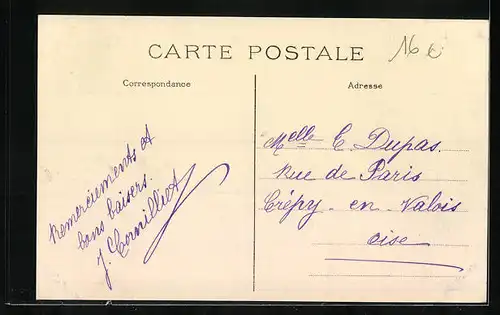 CARTE POSTALE
16 €
Correspondance
Adresse
Remerciements et
bons baisers.
J. Cornilliet
Melle E. Dupas.
Rue de Paris
Crépy-en-Valois
Oise